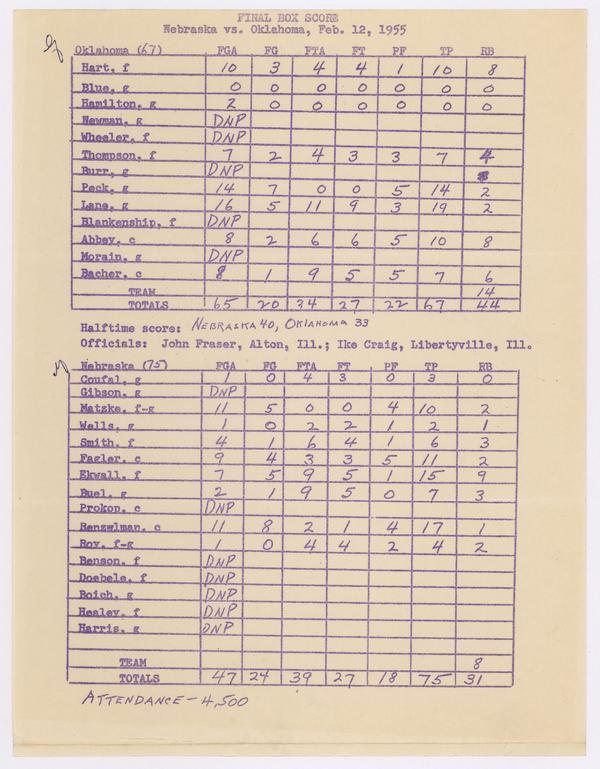 FINAL BOX SCORE
Nebraska vs. Oklahoma, Feb. 12, 1955
Oklahoma (67) FGA FG FTA FT PF TP RB
Hart, f 10 3 4 4 1 10 8
Blue, g 0 0 0 0 0 0 0
Hamilton, g 2 0 0 0 0 0 0
Newman, g DNP
Wheeler, f DNP
Thompson, f 7 2 4 3 3 7 4
Burr, g DNP
Peck, g 14 7 0 0 5 14 2
Lane, g 16 5 11 9 3 19 2
Blankenship, f DNP
Abbey, c 8 2 6 6 5 10 8
Morain, g DNP
Bacher, c 8 1 9 5 5 7 6
TEAM 14
TOTALS 65 20 34 27 22 67 44
Halftime score: NEBRASKA 40, OKLAHOMA 33
Officials: John Fraser, Alton, Ill.; Ike Craig, Libertyville, Ill.
Nebraska (75) FGA FG FTA FT PF TP RB
Coufal, g 1 0 4 3 0 3 0
Gibson, g DNP
Matzke, f-g 11 5 0 0 4 10 2
Wells, g 1 0 2 2 1 2 1
Smith, f 4 1 6 4 1 6 3
Fagler, c 9 4 3 3 5 11 2
Ekwall, f 7 5 9 5 1 15 9
Buel, g 2 1 9 5 0 7 3
Prokop, c DNP
Renzelman, c 11 8 2 1 4 17 1
Roy, f-g 1 0 4 4 2 4 2
Benson, f DNP
Doebele, f DNP
Boich, g DNP
Healey, f DNP
Harris, g DNP
TEAM 8
TOTALS 47 24 39 27 18 75 31
ATTENDANCE - 4,500